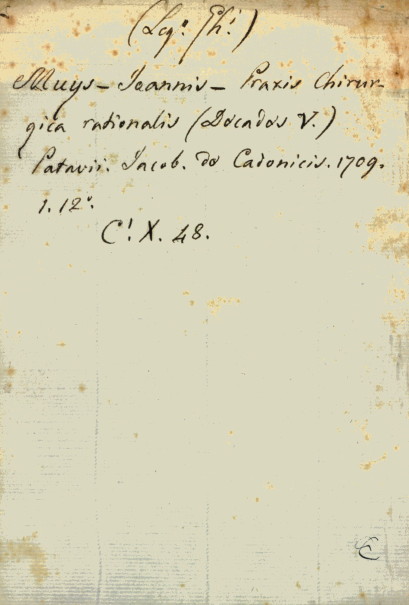 (Leg.º Ph.i)
Muys - Joannis - Praxis Chirur-
gica rationalis (Decades V.)
Patavii. Jacob. de Cadonicis. 1709.
1. 12º.
C! X. 48.